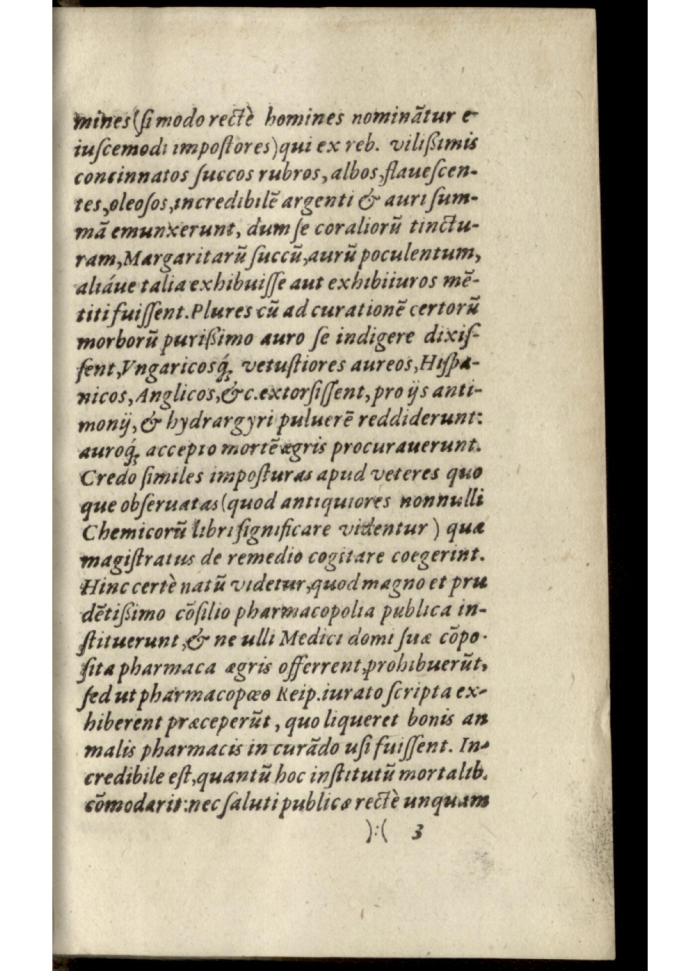 mines (ſi modo rectè homines nominātur e-
iuſcemodi impoſtores) qui ex reb. vilißimis
concinnatos ſuccos rubros, albos, flaueſcen-
tes, oleoſos, incredibilē argenti & auri ſum-
mā emunxerunt, dum ſe coraliorū tinctu-
ram, Margaritarū ſuccū, aurū poculentum,
aliáue talia exhibuiſſe aut exhibiiuros mē-
titi fuiſſent. Plures cū ad curationē certorū
morborū purißimo auro ſe indigere dixiſ-
ſent, Vngaricosq́; vetuſtiores aureos, Hiſpa-
nicos, Anglicos, &c. extorſiſſent, pro ijs anti-
monij, & hydrargyri puluerē reddiderunt:
auroq́; accepto mortē ægris procurauerunt.
Credo ſimiles impoſturas apud veteres quo
que obſeruatas (quod antiquiores nonnulli
Chemicorū libri ſignificare videntur) quæ
magiſtratus de remedio cogitare coegerint.
Hinc certè natū videtur, quod magno et pru
dētißimo cōſilio pharmacopolia publica in-
ſtituerunt, & ne ulli Medici domi ſuæ cōpo-
ſita pharmaca ægris offerrent, prohibuerūt,
ſed ut pharmacopœo Reip. iurato ſcripta ex-
hiberent præceperūt, quo liqueret bonis an
malis pharmacis in curādo uſi fuiſſent. In-
credibile eſt, quantū hoc inſtitutū mortalib.
cōmodarit: nec ſaluti publicæ rectè unquam
):( 3